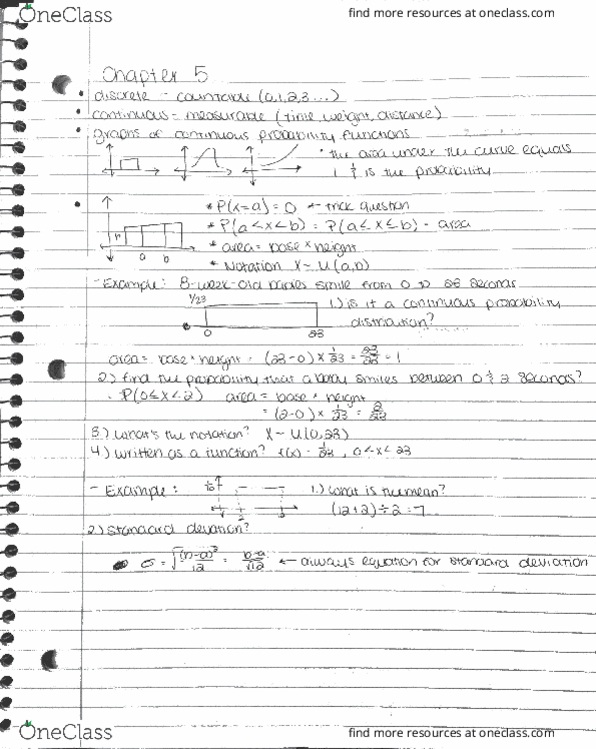 OneClass
find more resources at oneclass.com
Chapter 5
• discrete - countable (0,1,2,3...)
• continuous - measurable (time, weight, distance)
• graphs of continuous probability functions
* the area under the curve equals
1 & is the probability
* P(x=a) = 0 ← trick question
* P(a<x<b) = P(a≤x≤b) - area
* area = base × height
* Notation X~U(a,b)
h
a b
- Example: 8-week-old babies smile from 0 to 23 seconds
1/23
0 23
1.) is it a continuous probability
distribution?
area = base × height = (23-0) × 1/23 = 23/23 = 1
2.) find the probability that a baby smiles between 0 & 2 seconds?
P(0≤x<2) area = base × height
= (2-0) × 1/23 = 2/23
3.) what's the notation? X~U(0,23)
4.) written as a function? f(x) = 1/23, 0<x<23
- Example: 1/10
2
1.) what is the mean?
(12+2)÷2=7
2.) standard deviation?
σ = √(b-a)²/12 = b-a/√12 ← always equation for standard deviation
OneClass
find more resources at oneclass.com